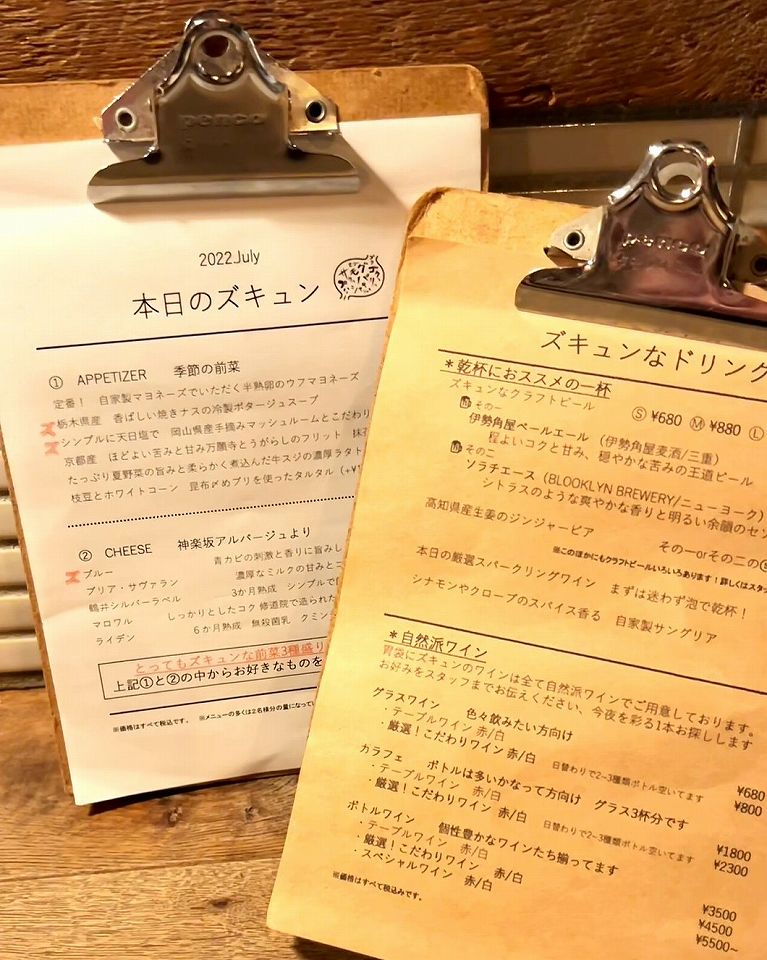 penco
2022.July
本日のズキュン
① APPETIZER 季節の前菜
定番！ 自家製マヨネーズでいただく半熟卵のウフマヨネーズ
栃木県産 香ばしい焼きナスの冷製ポタージュスープ
シンプルに天日塩で 岡山県産手摘みマッシュルームとこだわり
京都産 ほどよい苦みと甘み万願寺とうがらしのフリット 抹
たっぷり夏野菜の旨みと柔らかく煮込んだ牛スジの濃厚ラタト
枝豆とホワイトコーン 昆布〆めブリを使ったタルタル (+¥1
② CHEESE 神楽坂アルパージュより
ブルー 青カビの刺激と香りに旨みし
ブリア・サヴァラン 濃厚なミルクの甘みと
鶴井シルバーラベル 3か月熟成 シンプルで
マロワル しっかりとしたコク 修道院で造られた
ライデン 6か月熟成 無殺菌乳 クミン
とってもズキュンな前菜3種盛り
上記①と②の中からお好きなものを
※価格はすべて税込です。 ※メニューの多くは2名様分の量になって
penco
ズキュンなドリンク
*乾杯におススメの一杯
ズキュンなクラフトビール Ⓢ ¥680 Ⓜ ¥880 Ⓛ
その一
伊勢角屋ペールエール (伊勢角屋麦酒/三重)
程よいコクと甘み、穏やかな苦みの王道ビール
その二
ソラチエース (BLOOKLYN BREWERY/ニューヨーク)
シトラスのような爽やかな香りと明るい余韻のセゾ
高知県産生姜のジンジャービア その一orその二の
※このほかにもクラフトビールいろいろあります！詳しくはスタッ
本日の厳選スパークリングワイン まずは迷わず泡で乾杯！
シナモンやクローブのスパイス香る 自家製サングリア
*自然派ワイン
胃袋にズキュンのワインは全て自然派ワインでご用意しております。
お好みをスタッフまでお伝えください、今夜を彩る1本お探しします
グラスワイン 色々飲みたい方向け
・テーブルワイン 赤/白 ¥680
・厳選！こだわりワイン 赤/白 日替わりで2~3種類ボトル空いてます ¥800
カラフェ ボトルは多いかなって方向け グラス3杯分です
・テーブルワイン 赤/白 ¥1800
・厳選！こだわりワイン 赤/白 日替わりで2~3種類ボトル空いてます ¥2300
ボトルワイン 個性豊かなワインたち揃ってます
・テーブルワイン 赤/白 ¥3500
・厳選！こだわりワイン 赤/白 ¥4500
・スペシャルワイン 赤/白 ¥5500~
※価格はすべて税込みです。